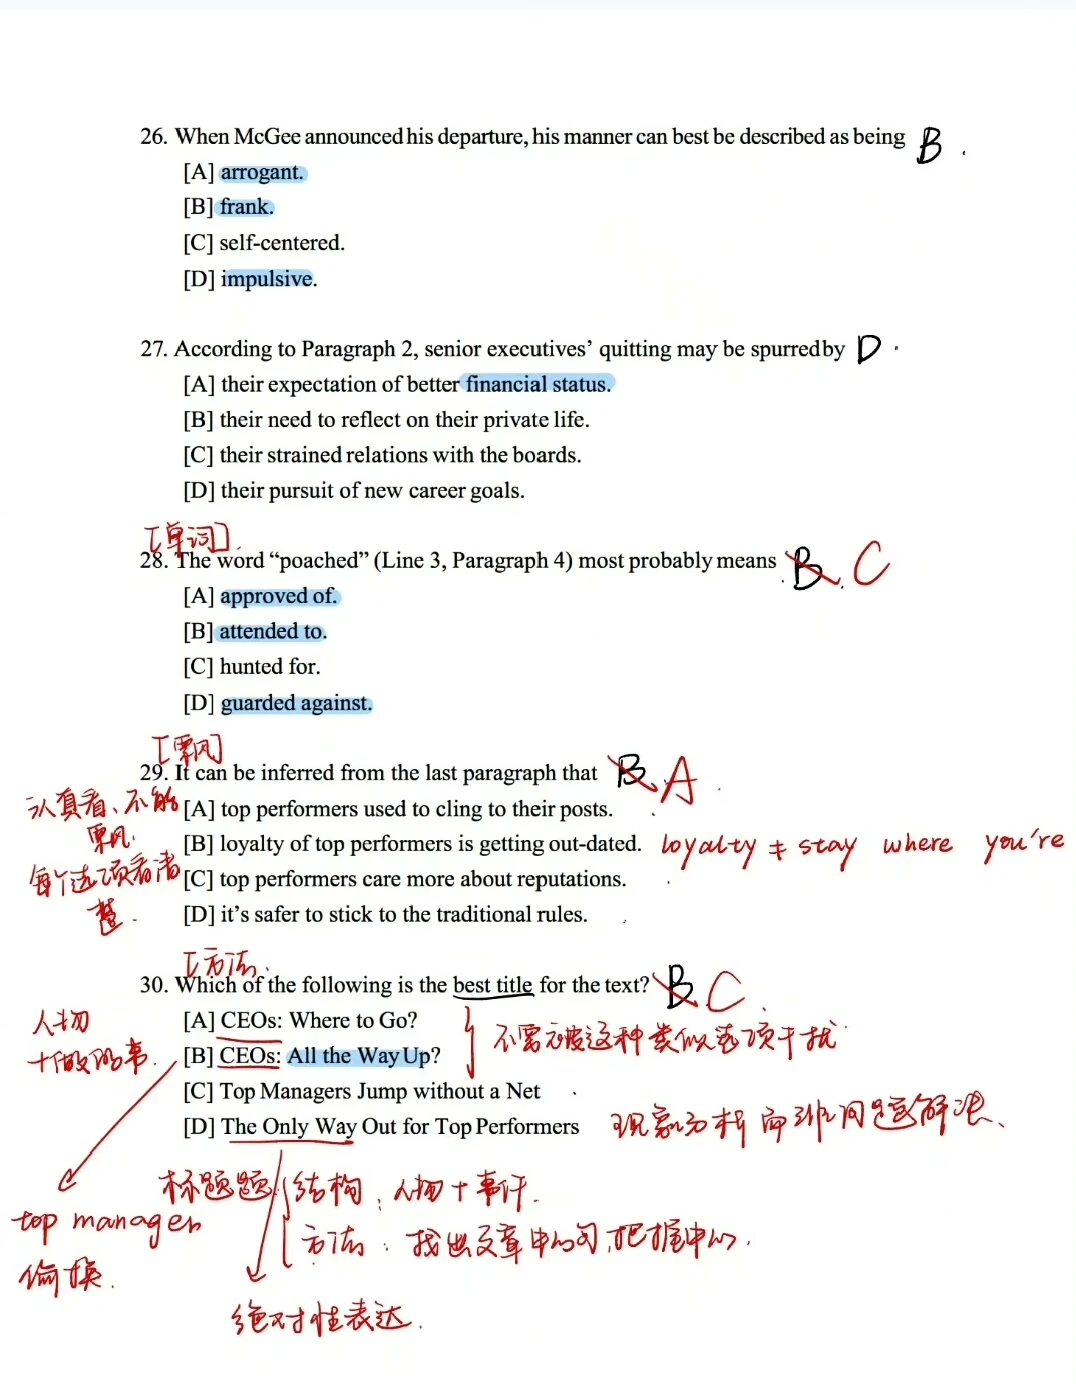 26. When McGee announced his departure, his manner can best be described as being B.
[A] arrogant.
[B] frank.
[C] self-centered.
[D] impulsive.
27. According to Paragraph 2, senior executives’ quitting may be spurred by D.
[A] their expectation of better financial status.
[B] their need to reflect on their private life.
[C] their strained relations with the boards.
[D] their pursuit of new career goals.
[单词].
28. The word “poached” (Line 3, Paragraph 4) most probably means B. C
[A] approved of.
[B] attended to.
[C] hunted for.
[D] guarded against.
[飘风]
29. It can be inferred from the last paragraph that B A.
认真看、不能
飘风.
每个选项看清
楚.
[A] top performers used to cling to their posts.
[B] loyalty of top performers is getting out-dated. loyalty ≠ stay where you're
[C] top performers care more about reputations.
[D] it’s safer to stick to the traditional rules.
[方法.
30. Which of the following is the best title for the text? B C.
人物
+做的事.
[A] CEOs: Where to Go?
[B] CEOs: All the Way Up?
不需要被这种类似选项干扰.
[C] Top Managers Jump without a Net
[D] The Only Way Out for Top Performers
现象分析而非问题解决、
top manager
偷换.
标题题
结构:人物+事件.
方法:找出文章中心句,把握中心.
绝对性表达.